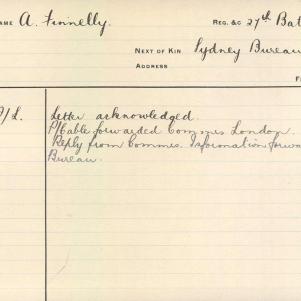 NAME A. Finnelly. REG. &C 27th Bat
NEXT OF KIN Sydney Bureau
ADDRESS
Letter acknowledged.
P/Cable forwarded Commrs London.
Reply from Commrs. Information forw
Bureau.